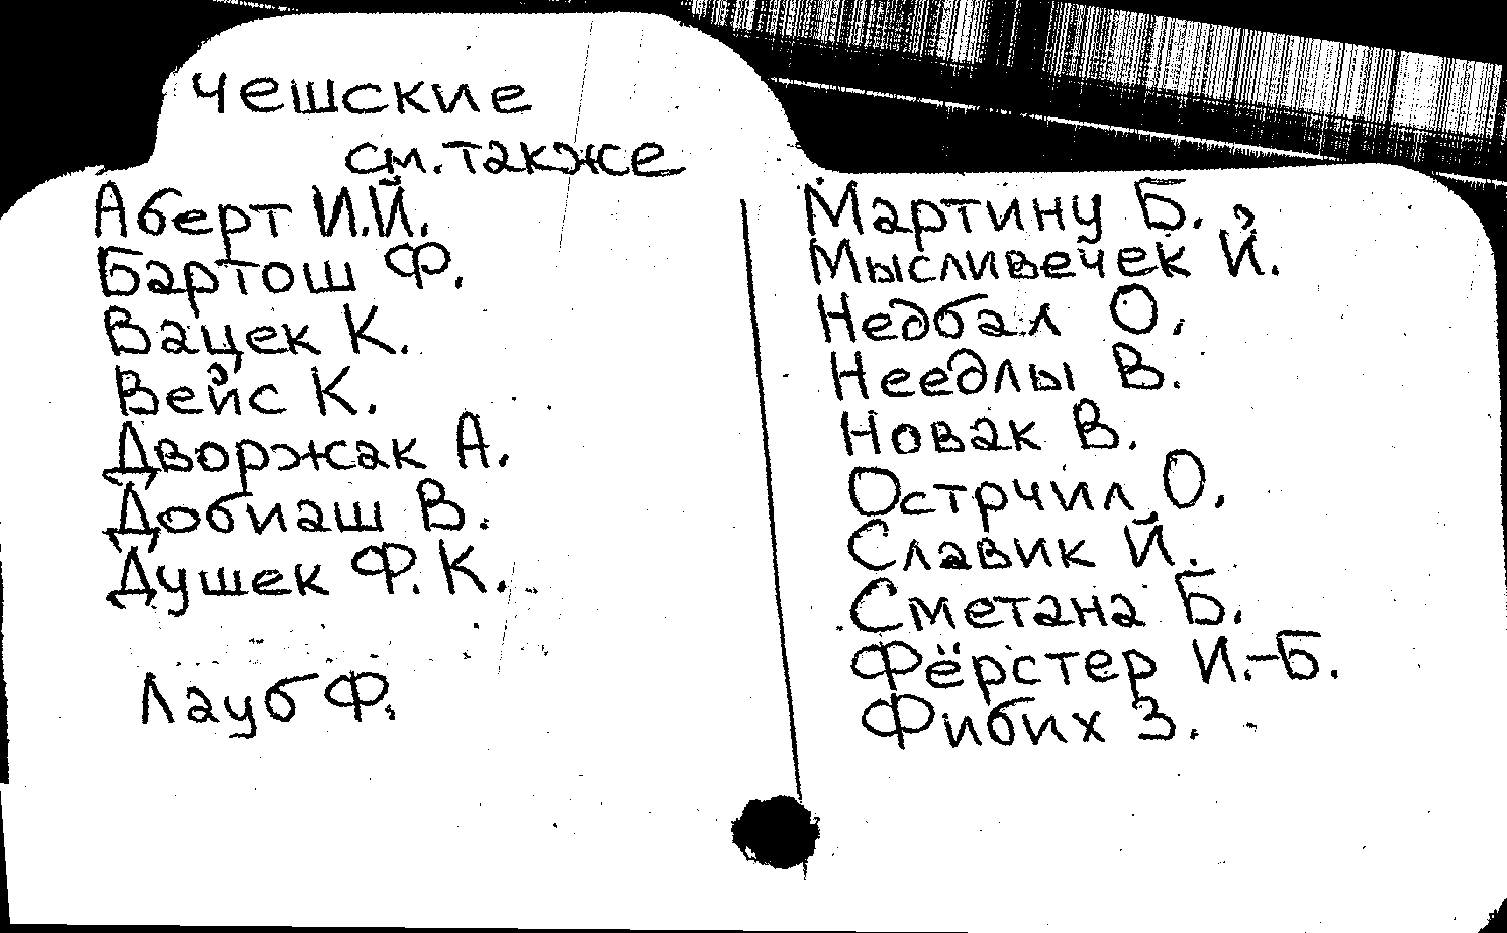 Чешские
см. также
Аберт И.Й.
Бартош Ф.
Вацек К.
Вейс К.
Дворжак А.
Добиаш В.
Душек Ф.К.
Лауб Ф.
Мартину Б.
Мысливечек Й.
Недбал О.
Неедлы В.
Новак В.
Острчил О.
Славик Й.
Сметана Б.
Фёрстер И.-Б.
Фибих З.